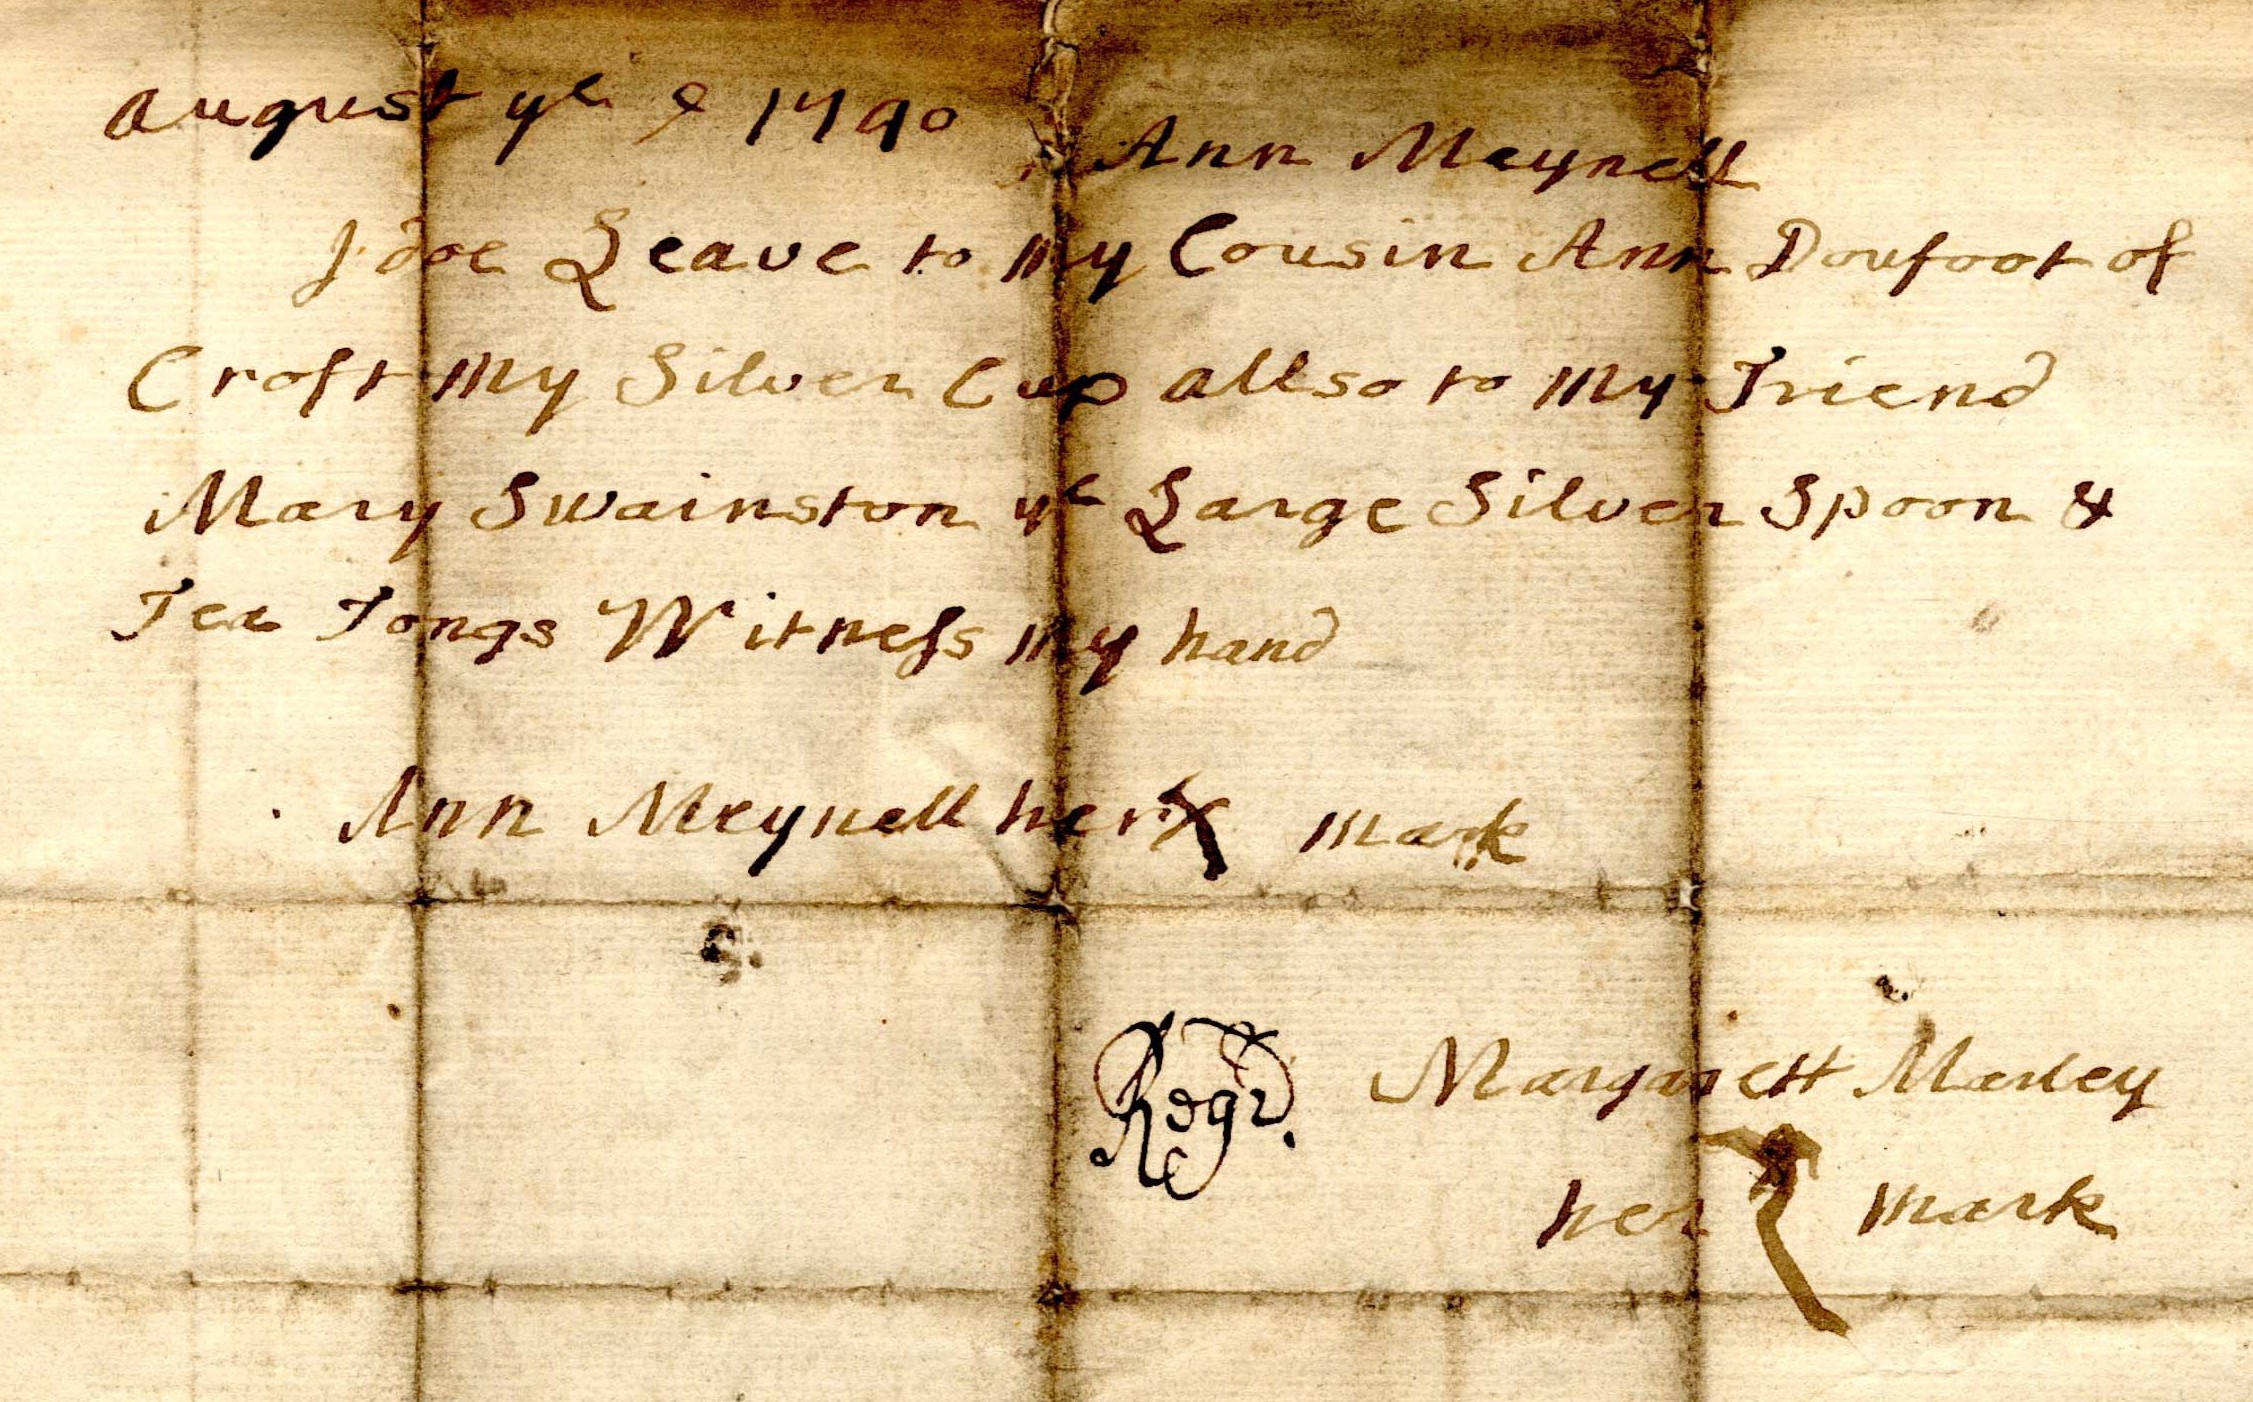 August ye 9 1790
Ann Meynell
I doe Leave to my Cousin Ann Doufoot of
Croft my Silver Cup allso to my Friend
Mary Swainston ye Large Silver Spoon &
Tea Tongs Witness my hand
Ann Meynell her X mark
Regr.
Margarett Marley
her mark